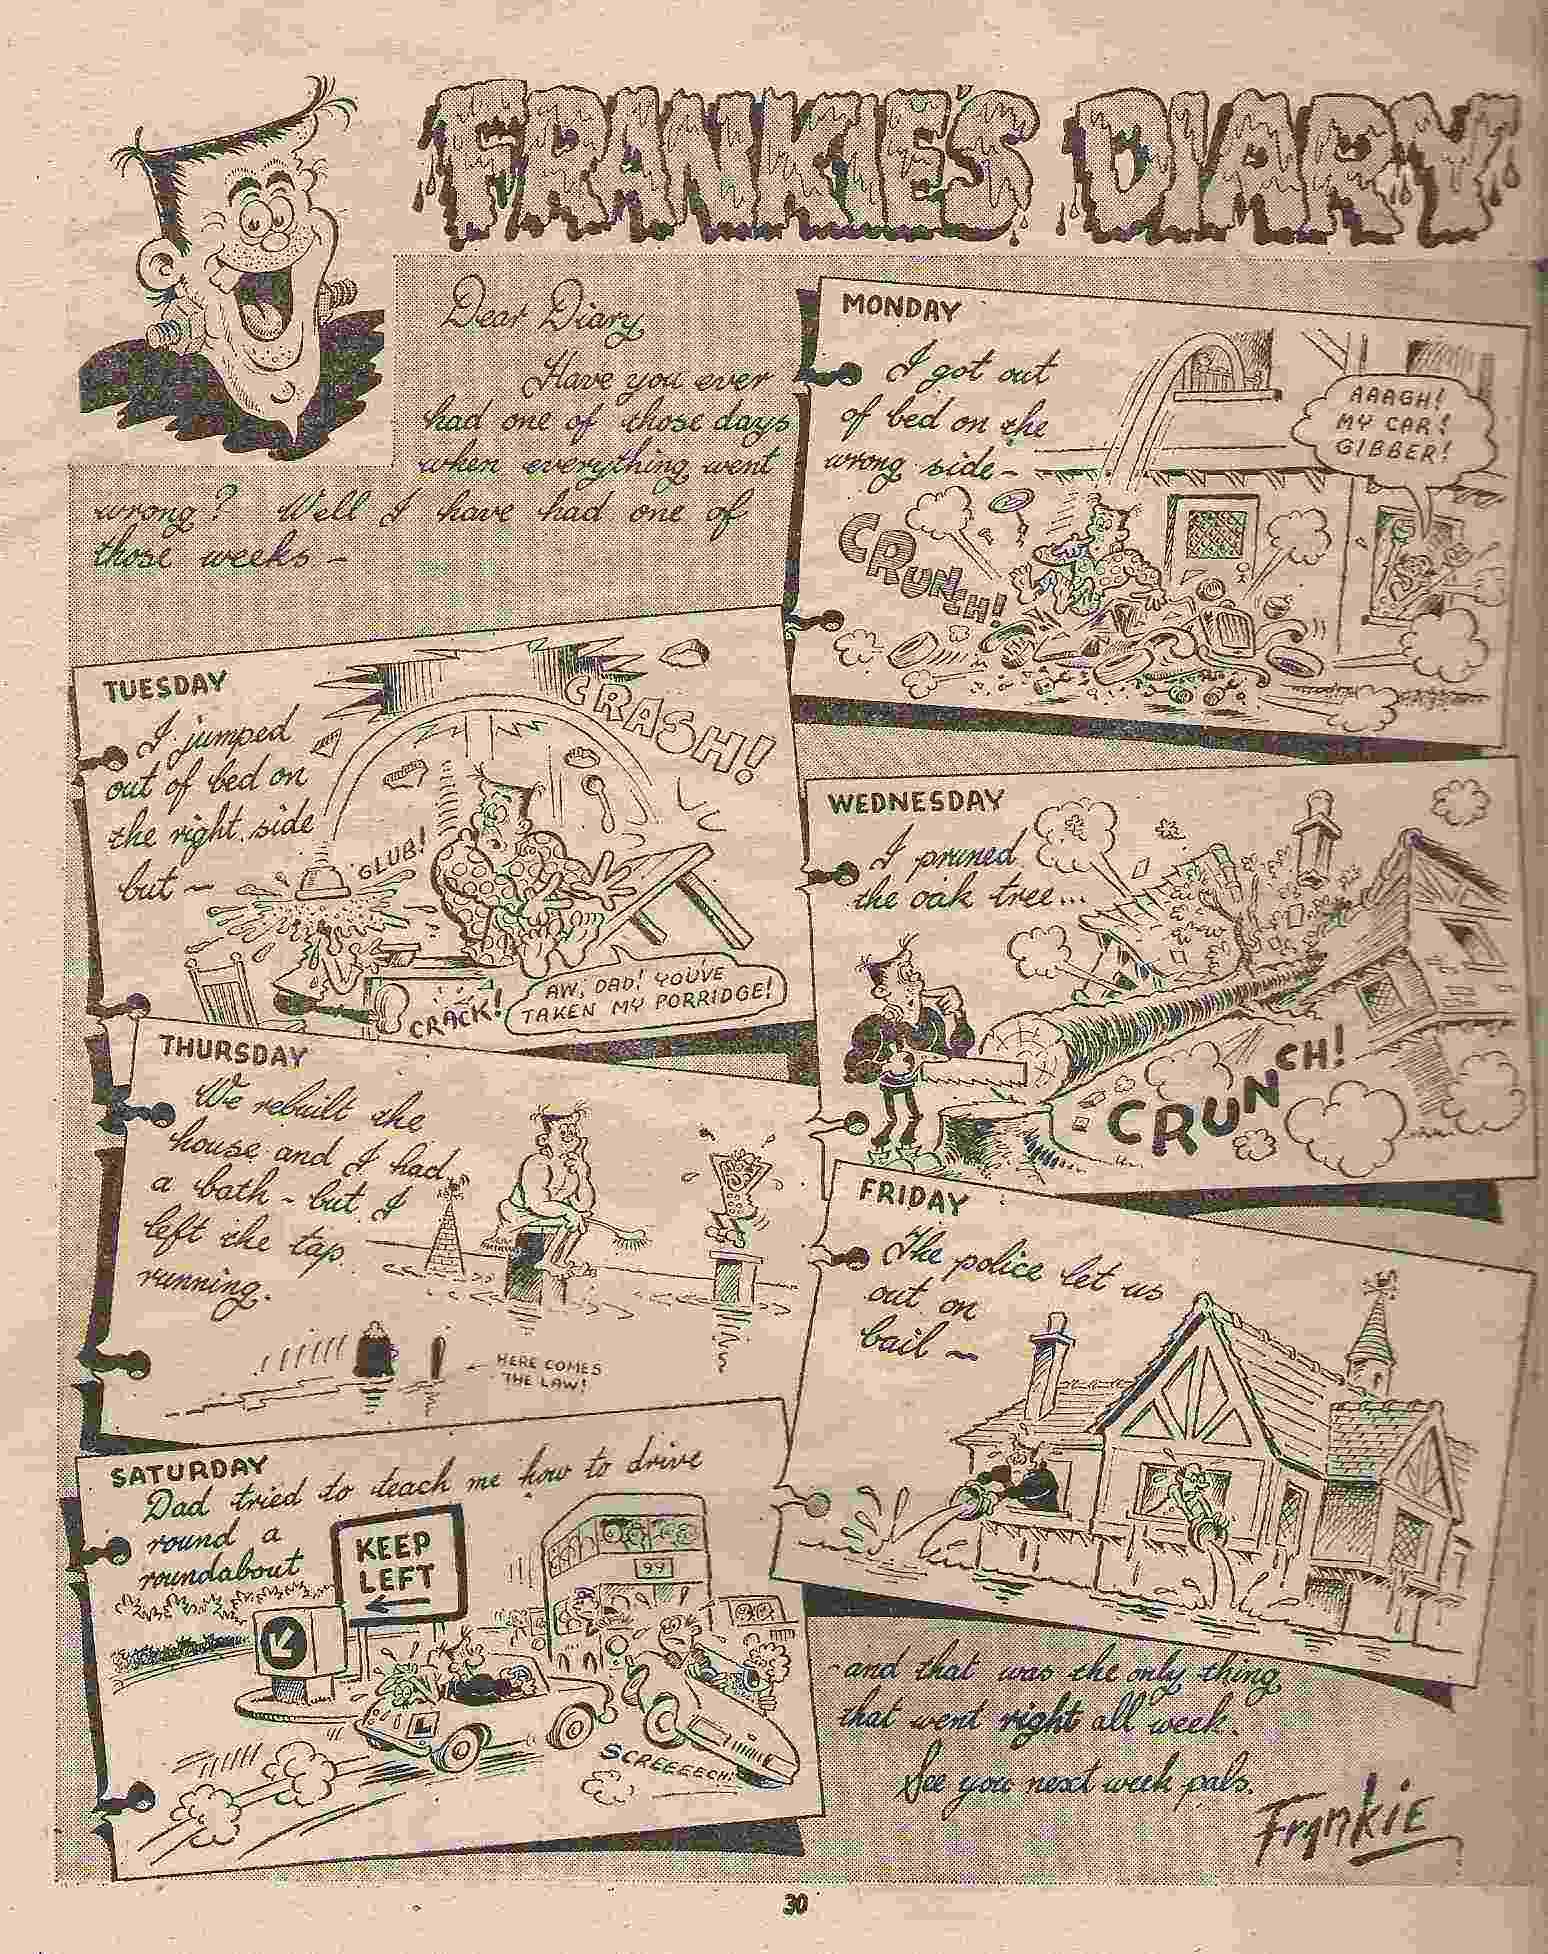 FRANKIE'S DIARY
Dear Diary,
Have you ever
had one of those days
when everything went
wrong? Well I have had one of
those weeks –
MONDAY
I got out
of bed on the
wrong side –
AAAGH!
MY CAR!
GIBBER!
CRUNCH!
TUESDAY
I jumped
out of bed on
the right side
but –
CRASH!
GLUB!
CRACK!
AW, DAD! YOU'VE
TAKEN MY PORRIDGE!
WEDNESDAY
I pruned
the oak tree...
CRUNCH!
THURSDAY
We rebuilt the
house and I had
a bath – but I
left the tap
running.
HERE COMES
THE LAW!
FRIDAY
The police let us
out on
bail –
SATURDAY
Dad tried to teach me how to drive
round a
roundabout
KEEP
LEFT
99
L
SCREEEECH!
– and that was the only thing
that went right all week.
See you next week pals.
Frankie
30